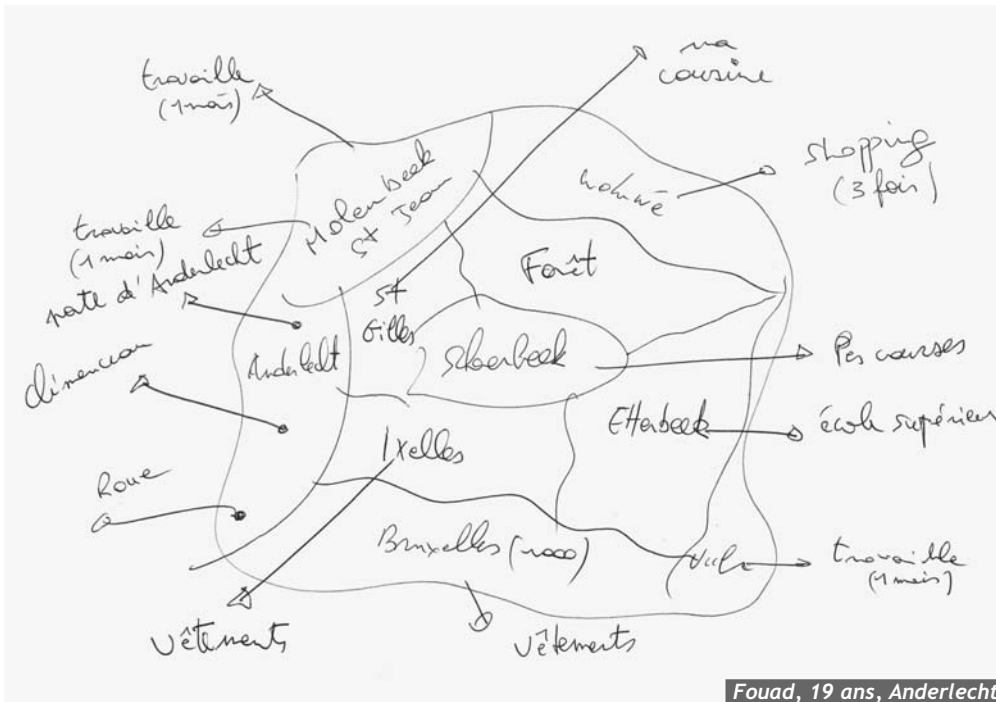 ma
cousine
travaille
(1 mois)
shopping
(3 fois)
woluwé
Molenbeek
St Jean
travaille
(1 mois)
porte d'Anderlecht
Forêt
St
Gilles
Anderlecht
Scherbeek
Les courses
clémenceau
Etterbeek
école supérieur
Ixelles
Roue
Bruxelles (1000)
Uccle
travaille
(1 mois)
Vêtements
Vêtements
Fouad, 19 ans, Anderlecht